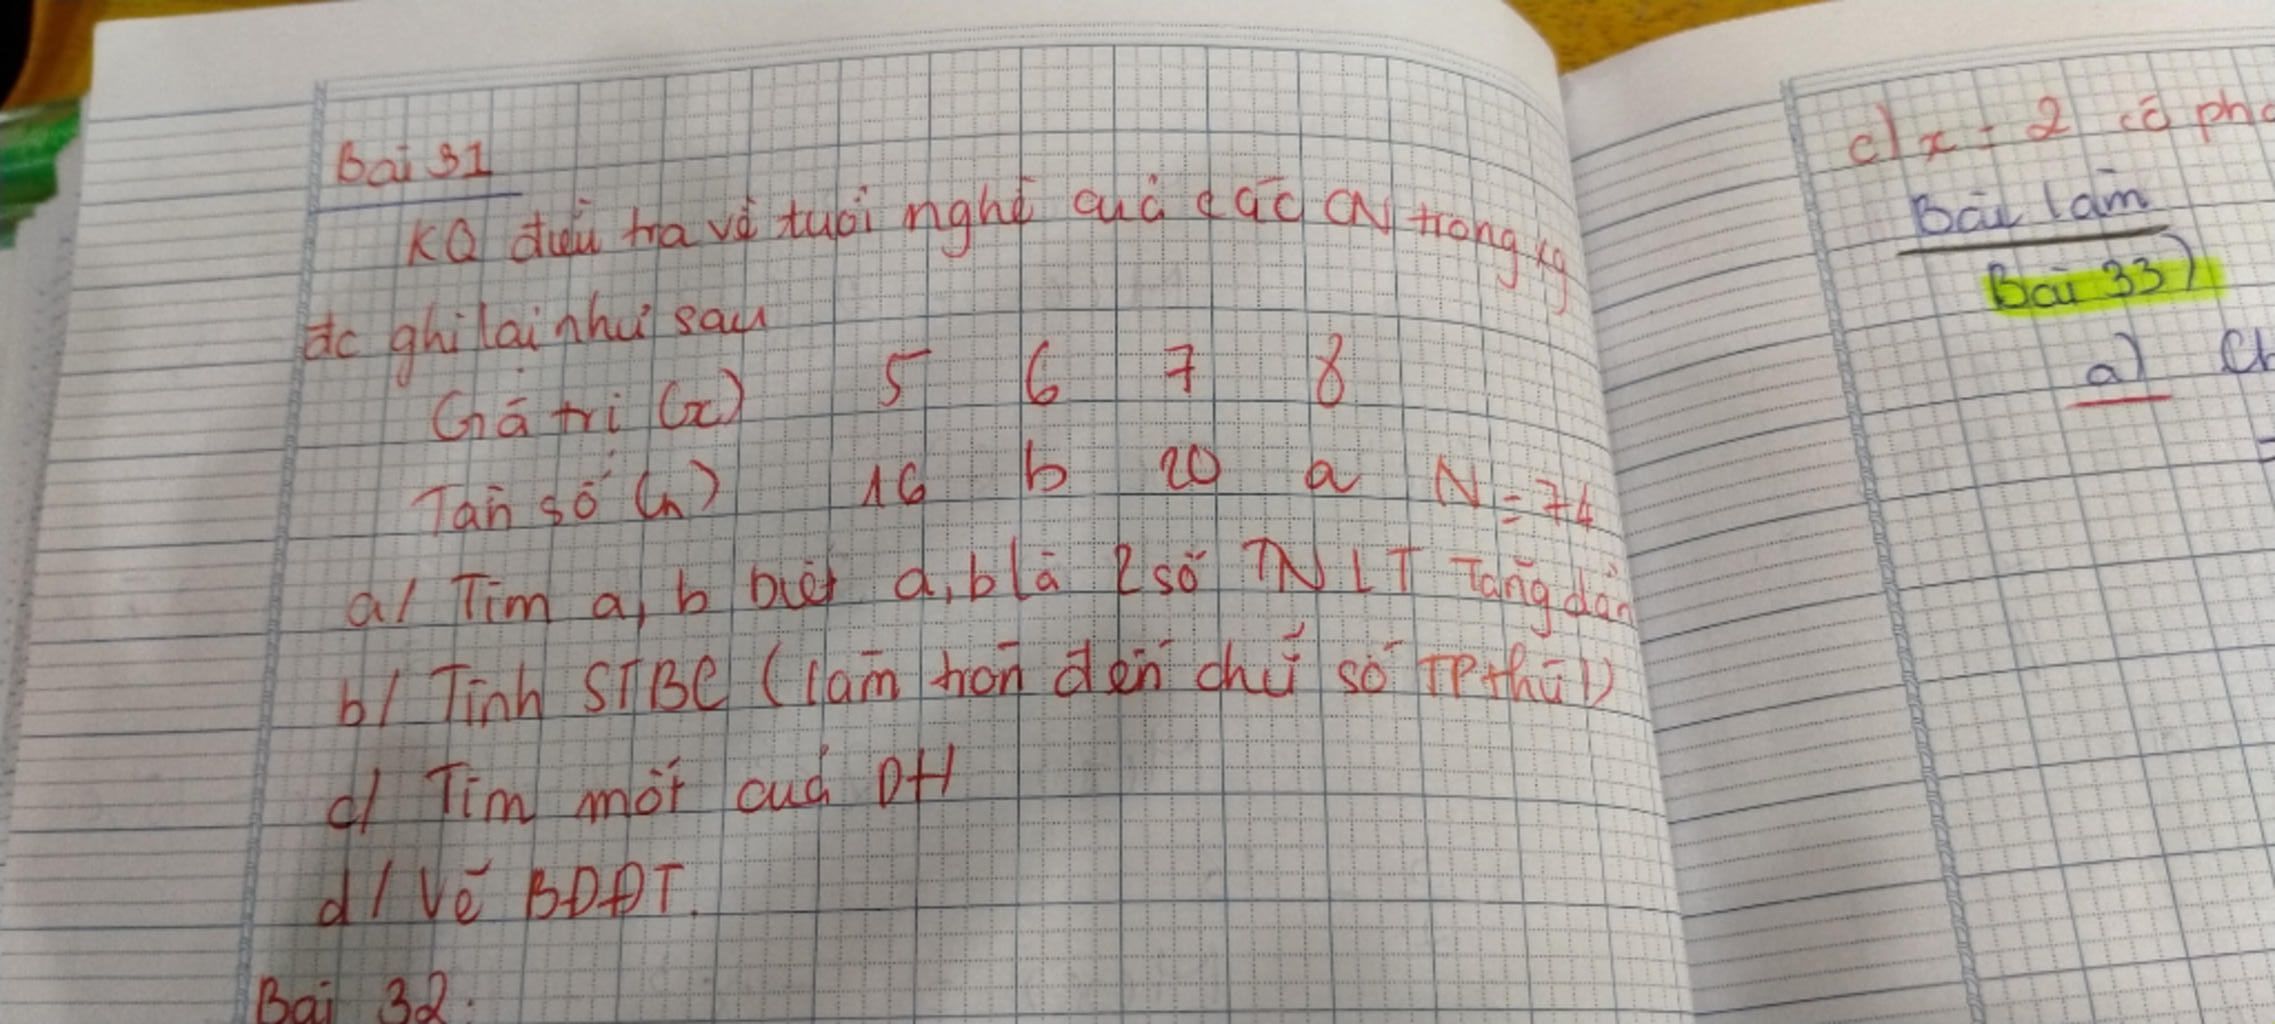 Bài 31
KQ điều tra về tuổi nghề của các CN trong xg
đc ghi lại như sau
Giá trị (x) 5 6 7 8
Tần số (n) 16 b 20 a N = 74
a/ Tìm a, b biết a, b là 2 số TNLT Tăng dần
b/ Tính STBC (làm tròn đến chữ số TP thứ 1)
c/ Tìm mốt của DH
d/ Vẽ BDĐT.
Bài 32:
c) x = 2 có
Bài làm
Bài 33)
a)